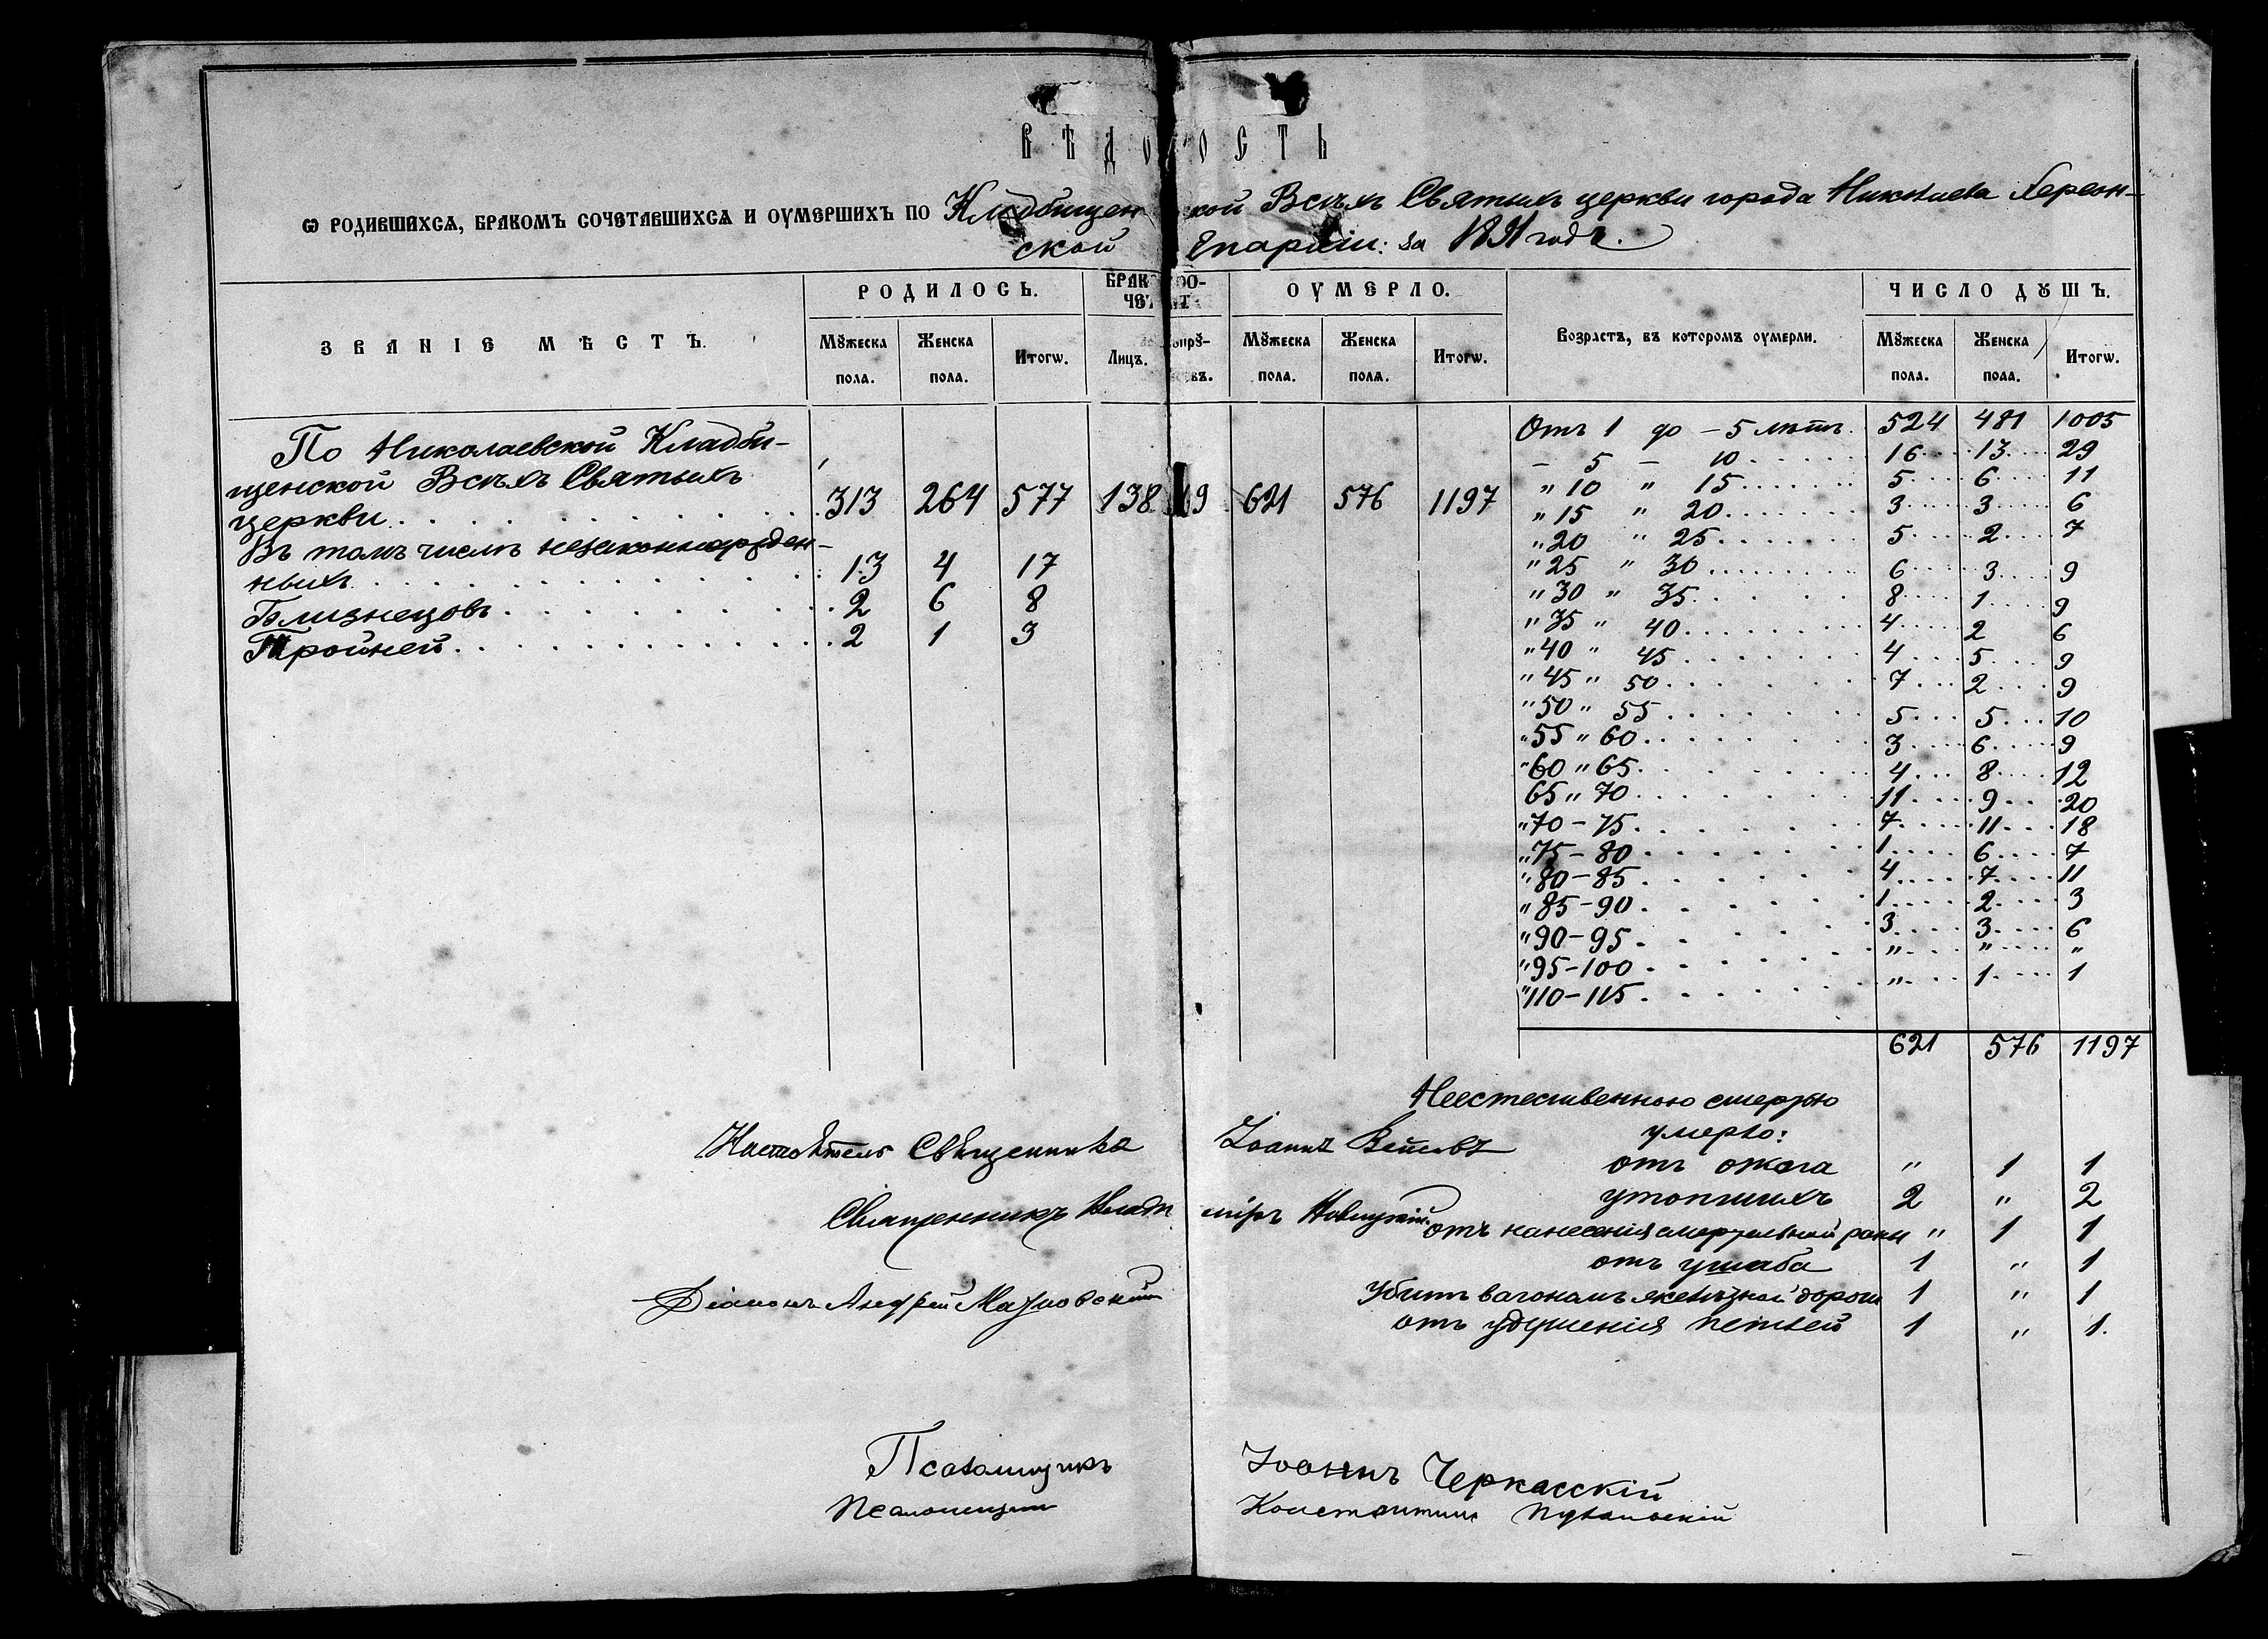 ВѢДОМОСТЬ
Ѡ РОДИВШИХСѦ, БРАКОМЪ СОЧЕТАВШИХСѦ И ОУМЕРШИХЪ ПО Кладбищенской Всѣхъ Святыхъ церкви города Николаева Херсон-
ской Епархіи: за годъ.
ЗВАНІЕ МѢСТЪ. РОДИЛОСЬ. БРАКОСО- ОУМЕРЛО. Возрастъ, въ которомъ оумерли. ЧИСЛО ДꙊШЪ.
ЧЕТ
Мꙋжеска Женска Итогѡ. Лицъ. Сꙋпрꙋ- Мꙋжеска Женска Итогѡ. Мꙋжеска Женска Итогѡ.
пола. пола. ствъ. пола. пола. пола. пола.
По Николаевской Кладби-
щенской Всѣхъ Святыхъ
церкви 313 264 577 138 69 621 576 1197
Въ томъ числѣ незаконнорожден-
ныхъ 13 4 17
Близнецовъ 2 6 8
Тройней 2 1 3
Отъ 1 до - 5 лѣтъ. 524 481 1005
- 5 - 10 16 13 29
" 10 " 15 5 6 11
" 15 " 20 3 3 6
" 20 " 25 5 2 7
" 25 " 30 6 3 9
" 30 " 35 8 1 9
" 35 " 40 4 2 6
" 40 " 45 4 5 9
" 45 " 50 7 2 9
" 50 " 55 5 5 10
" 55 " 60 3 6 9
" 60 " 65 4 8 12
65 " 70 11 9 20
" 70 - 75 7 11 18
" 75 - 80 1 6 7
" 80 - 85 4 7 11
" 85 - 90 1 2 3
" 90 - 95 3 3 6
" 95 - 100 " " "
" 110 - 115 " 1 1
621 576 1197
Неестественною смертью
умерло:
отъ ожога " 1 1
утопшихъ 2 " 2
отъ нанесенія смертельной раны " 1 1
отъ ушиба 1 " 1
Убитъ вагономъ желѣзной дороги 1 " 1
отъ удушенія петлей 1 " 1.
Настоятель Священникъ Іоаннъ
Священникъ Владиміръ Новицкій
Діаконъ Андрей
Псаломщикъ Іоаннъ Черкасскій
Псаломщикъ Константинъ